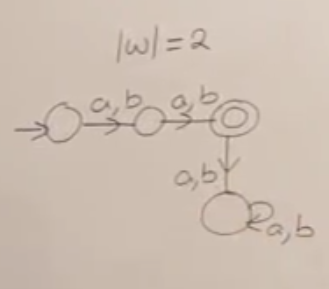 |w| = 2
a,b a,b
a,b
a,b